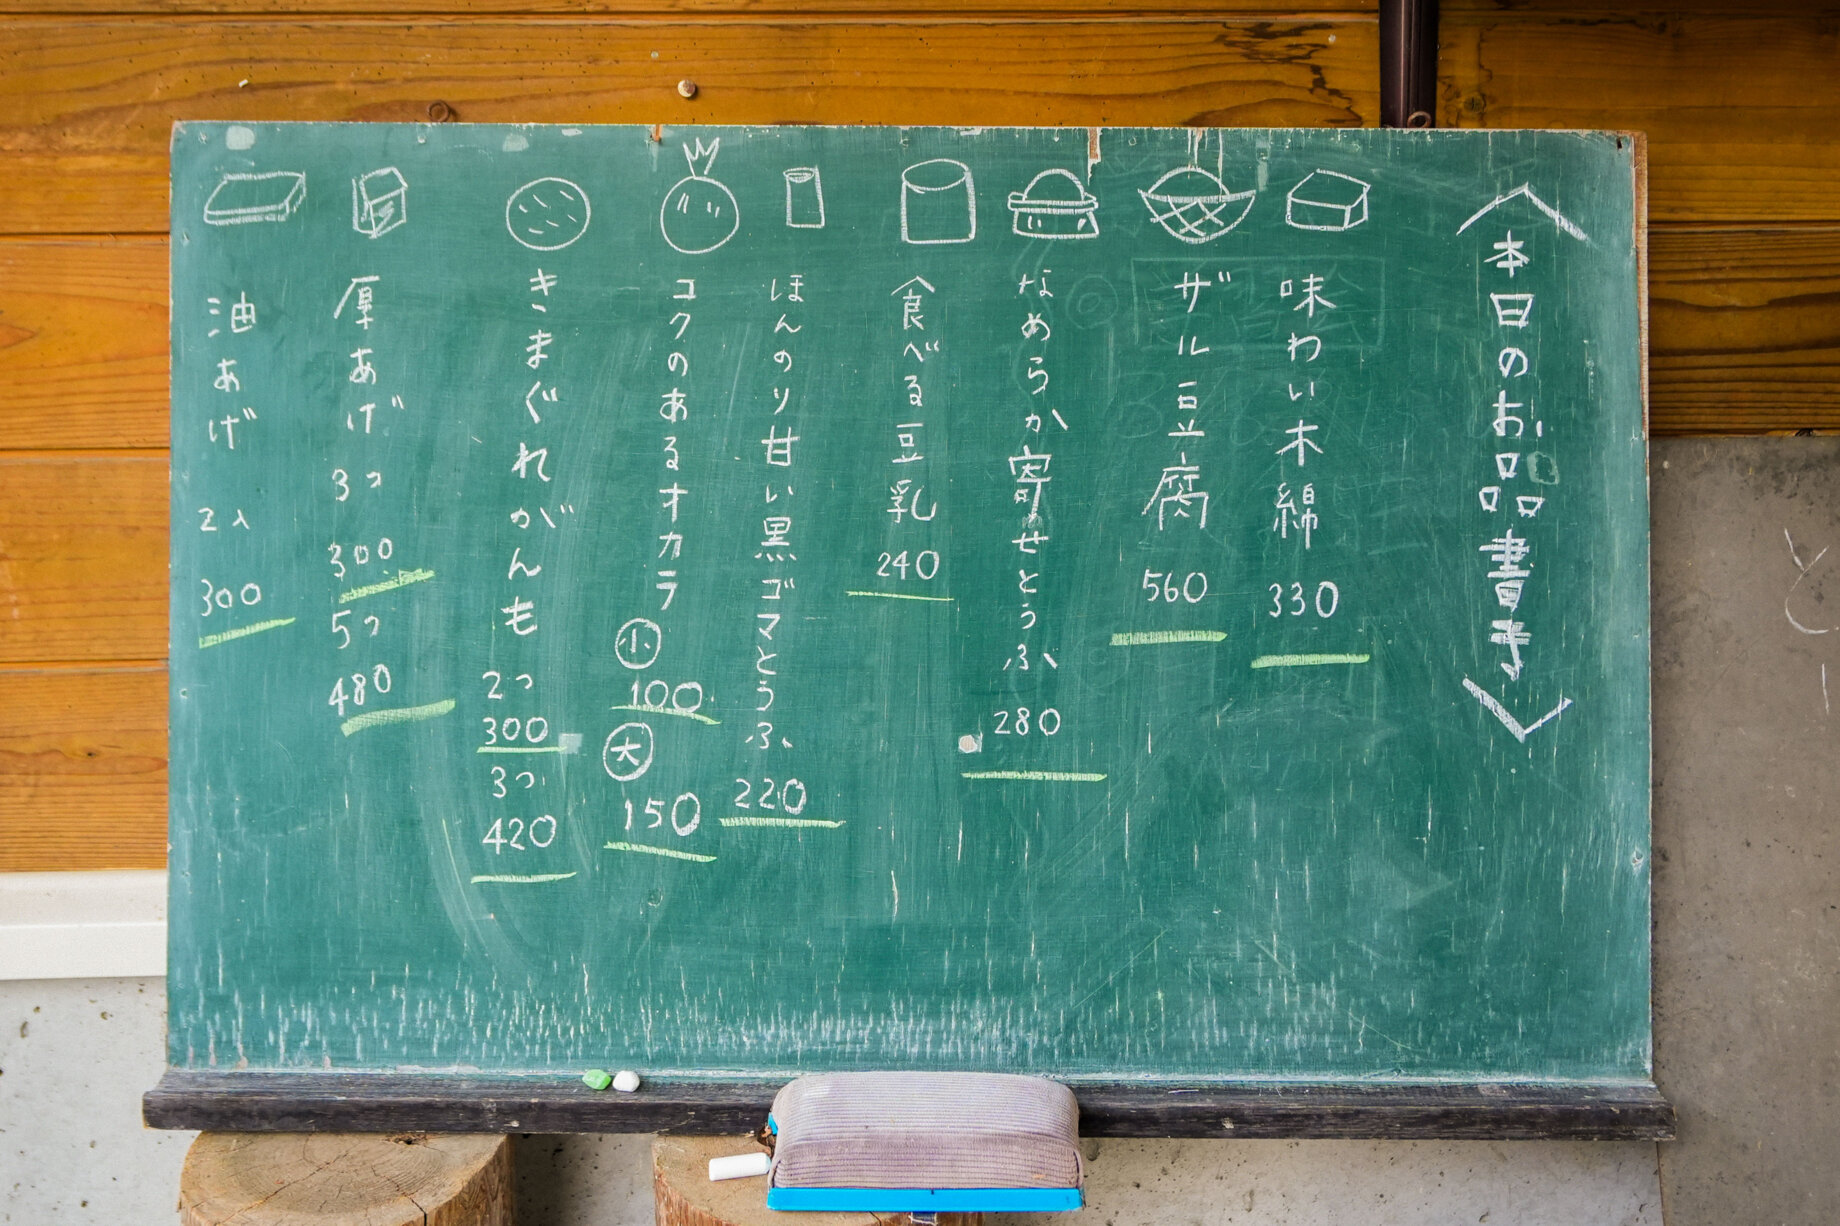 本日のお品書き
味わい木綿
330
ザル豆腐
560
なめらか寄せとうふ
280
食べる豆乳
240
ほんのり甘い黒ゴマとうふ
220
コクのあるオカラ
小
100
大
150
きまぐれがんも
2つ
300
3つ
420
厚あげ
3つ
300
5つ
480
油あげ
2入
300